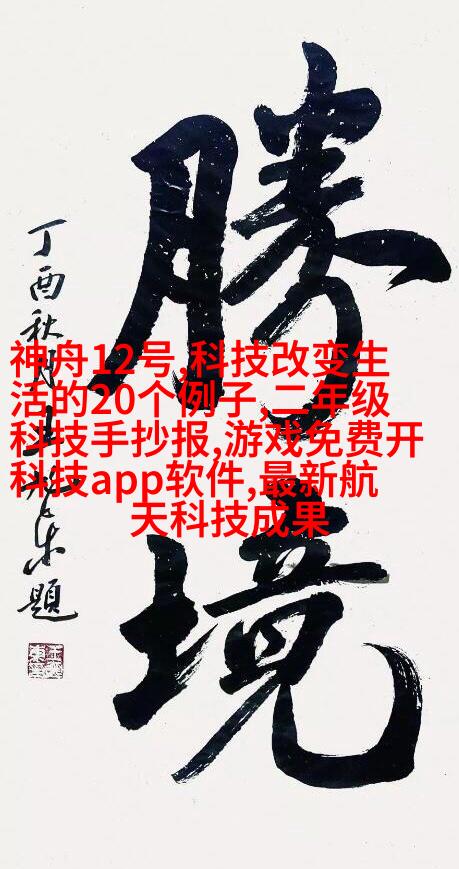 勝境
丁酉秋月題
神舟12号,科技改变生
活的20个例子,二年级
科技手抄报,游戏免费开
科技app软件,最新航
天科技成果